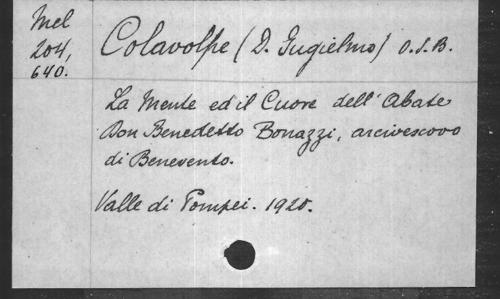 Mel
204,
640.
Colavolpe (D. Gugielmo) O.S.B.
La Mente ed il Cuore dell' Abate
Don Benedetto Bonazzi, arcivescovo
di Benevento.
Valle di Pompei. 1920.